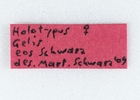 Holotypus ♀
Gelis
eos Schwarz
des. Mart. Schwarz '09